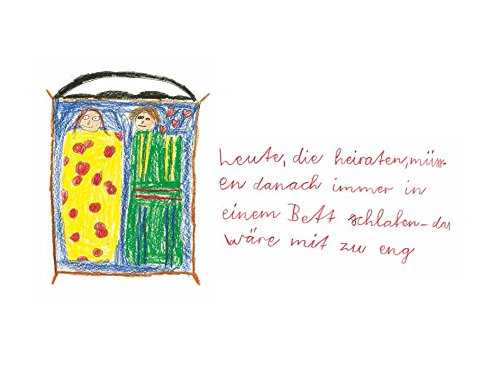 Leute, die heiraten, müss-
en danach immer in
einem Bett schlafen - das
wäre mit zu eng